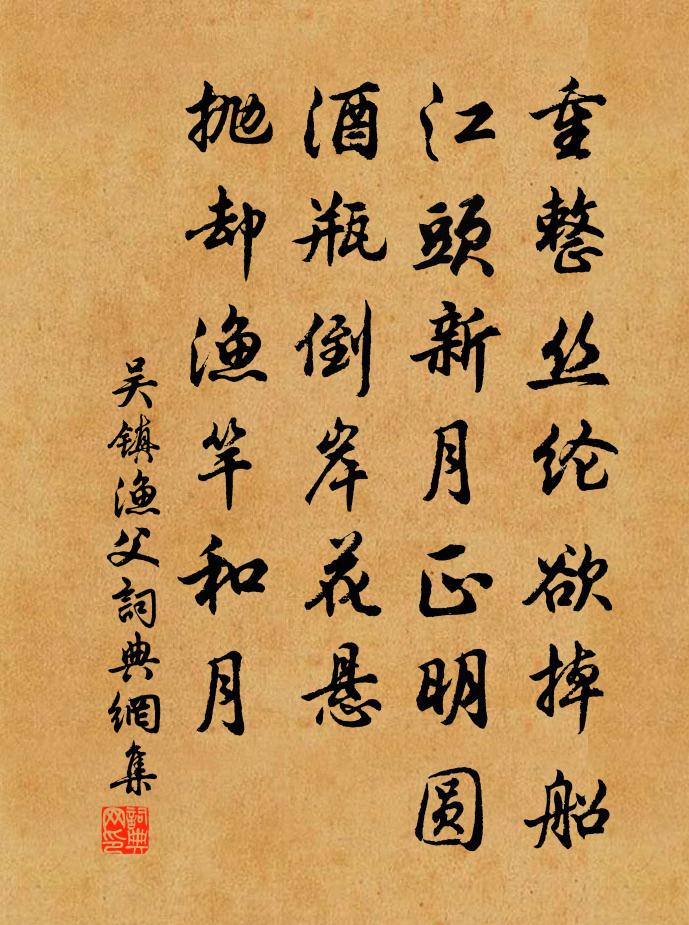 重整丝纶欲掉船
江頭新月正明圆
酒瓶倒岸花悬
抛却渔竿和月
吴镇渔父詞典網集
詞典网印